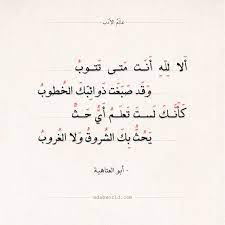 عالم الأدب
ألا لله أنت متى تتوب
وقد صبغت ذوائبك الخطوب
كأنك لست تعلم أي حث
يحث بك الشروق ولا الغروب
- أبو العتاهية -
adabworld.com